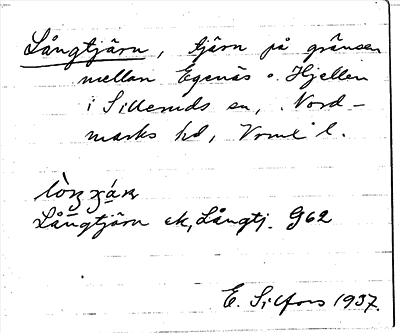 Långtjärn, tjärn på gränsen
mellan Egenäs o. Hjellen
i Silleruds sn, Nord-
marks hd, Vrml l.
Långtjärn ek, Långtj. G62
E. Silfors 1937.